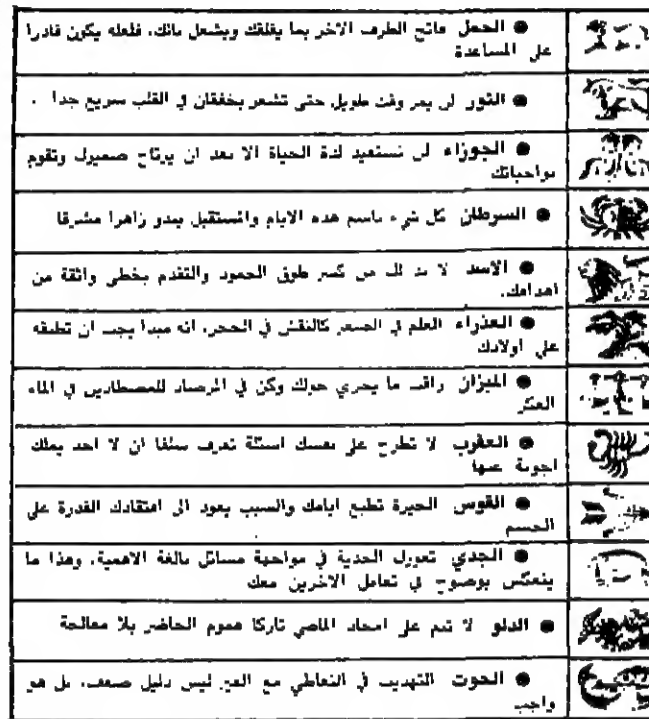 ● الحمل فاتح الطرف الاخر بما يقلقك ويشغل بالك، فلعله يكون قادرا
على المساعدة
● الثور لن يمر وقت طويل حتى تشعر بخفقان في القلب سريع جدا .
● الجوزاء لن تستعيد لذة الحياة الا بعد ان يرتاح ضميرك وتقوم
بواجباتك
● السرطان كل شيء باسم هذه الايام والمستقبل يبدو زاهرا مشرقا
● الاسد لا بد لك من كسر طوق الجمود والتقدم بخطى واثقة من
اهدافك.
● العذراء العلم في الصغر كالنقش في الحجر، انه مبدأ يجب ان تطبقه
على اولادك
● الميزان راقب ما يجري حولك وكن في المرصاد للمصطادين في الماء
العكر
● العقرب لا تطرح على نفسك اسئلة تعرف سلفا ان لا احد يملك
اجوبة عنها
● القوس الحيرة تطبع ايامك والسبب يعود الى افتقادك القدرة على
الحسم
● الجدي تعوزك الجدية في مواجهة مسائل بالغة الاهمية، وهذا ما
ينعكس بوضوح في تعامل الاخرين معك
● الدلو لا تنم على امجاد الماضي تاركا هموم الحاضر بلا معالجة
● الحوت التهذيب في التعاطي مع الغير ليس دليل ضعف، بل هو
واجب